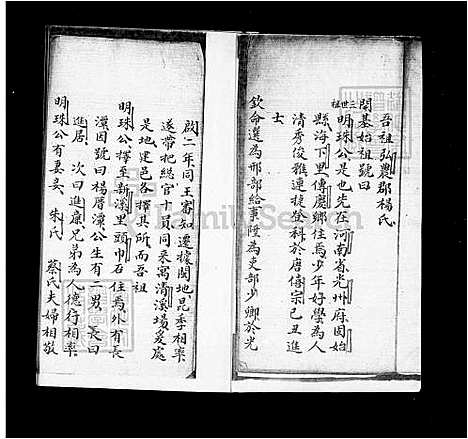 吾祖弘農郡楊氏
開基始祖號曰
三世祖
明珠公是也先在河南省光州府固始
縣海下里傳應鄉住焉少年好學為人
清秀俊雅連捷登科於唐僖宗己丑進
士
欽命選為邢部給事陞為吏部少卿於光
啟二年同王審知遷據閩地昆季相率
遂帶把總官十員同來寓清溪場爰處
是地建邑各擇其所而吾祖
明珠公擇至新溪里頭巾石住焉外有長
潭因號曰楊厝潭公生有二男長曰
進居次曰進康兄弟為人德行相率
明珠公有妻妾朱氏蔡氏夫婦相敬
FamilySearch